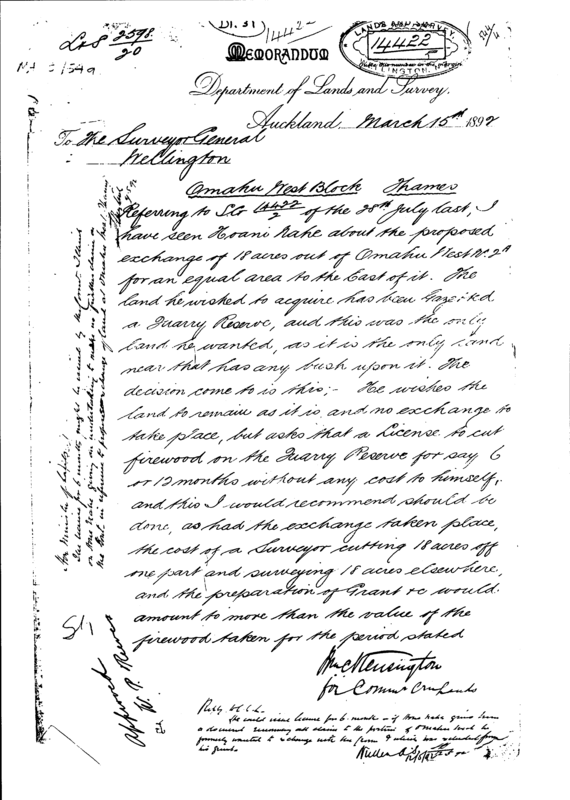 L&S 2598
20
14422
MEMORANDUM
LANDS AND SURVEY.
14422
WELLINGTON
Department of Lands and Survey.
Auckland, March 15th 1892
To The Surveyor General
Wellington
Omahu West Block Thames
Referring to S.G. 14422/2 of the 28th July last, I
have seen Hoani Nahe about the proposed
exchange of 18 acres out of Omahu West No. 2A
for an equal area to the East of it. The
land he wished to acquire has been Gazetted
a Quarry Reserve, and this was the only
land he wanted, as it is the only land
near that has any bush upon it. The
decision come to is this;- He wishes the
land to remain as it is, and no exchange to
take place, but asks that a License to cut
firewood on the Quarry Reserve for say 6
or 12 months without any cost to himself,
and this I would recommend should be
done, as had the exchange taken place,
the cost of a Surveyor cutting 18 acres off
one part and surveying 18 acres elsewhere,
and the preparation of Grant &c would
amount to more than the value of the
firewood taken for the period stated
Wm C Kensington
for Commr Crn Lands
Hon Minister of Lands
The license for 6 months might be issued by the Comr. Auckland
on Hone Nahe giving an undertaking to make no further claim
in reference to proposed exchange of land at Omahu West
Approved
W. P. Reeves
Reply
He could issue license for 6 months if Hone Nahe gives him
a document renouncing all claims to the portion of Omahu block he
formerly wanted to exchange